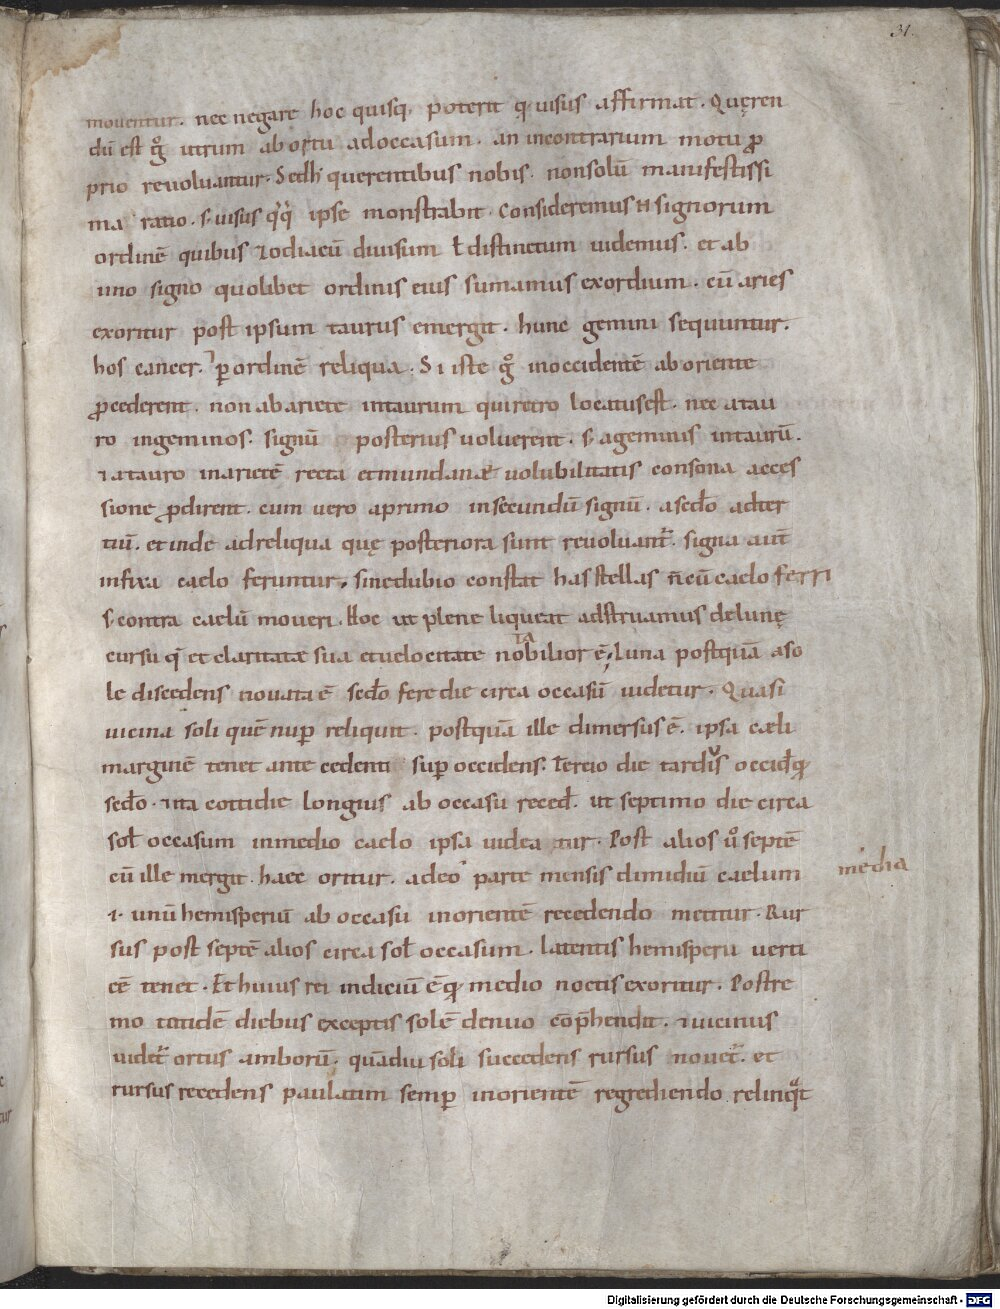 31.
mouentur. nec negare hoc quisq; poterit q; uisus affirmat. Quęren
dū est gͦ utrum ab ortu ad occasum. an in contrarium motu ꝓ
prio reuoluantur. Sed h̄ querentibus nobis. non solū manifestissi
ma ratio. s; uisus qͥqͥ ipse monstrabit. Consideremus n̄ signorum
ordinē quibus zodiacū diuisum ł distinctum uidemus. et ab
uno signo quolibet ordinis eius sumamus exordium. cū aries
exoritur post ipsum taurus emergit. hunc gemini sequuntur.
hos cancer. ꝑ ordinē reliqua. Si iste gͦ in occidentē ab oriente
ꝓcederent. non ab ariete in taurum qui retro locatus est. nec a tau
ro in geminos. signū posterius uoluerent. s; a geminis in taurū.
⁊ a tauro in arietē recta et mundanæ uolubilitatis consona acces
sione ꝓdirent. cum uero a primo in secundū signū. a sec̄do ad ter
tiū. et inde ad reliqua quę posteriora sunt reuoluant᷑. signa aut̄
infixa caelo feruntur. sine dubio constat has stellas n̄ cū caelo ferri
s; contra caelū moueri. Hoc ut plene liqueat adstruamus de lunę
cursu q̄ et claritate sua et uelocitate nobilior ē; Luna postquā a so
le discedens nouata ē sec̄do fere die circa occasū uidetur. Quasi
uicina soli quē nuꝑ reliquit. postquā ille dimersus ē. ipsa cæli
marginē tenet ante cedenti suꝑ occidens. Tercio die tardius occid̄ q̄
sec̄do. ⁊ ita cottidie longius ab occasu reced̄. ut septimo die circa
sol̄ occasum in medio caelo ipsa uideatur. Post alios ū septē
cū ille mergit. haec oritur. adeo parte mensis dimidiū caelum
media
.i. unū hemisperiū ab occasu in orientē recedendo metitur. Rur
sus post septē alios circa sol̄ occasum. latentis hemisperii uerti
cē tenet. Et huius rei indiciū ē q̄ medio noctis exoritur. Postre
mo totidē diebus exceptis solē denuo cōp̄hendit. ⁊ uicinus
uidet᷑ ortus amborū. quādiu soli succedens rursus nouet᷑. et
rursus recedens paulatim semꝑ in orientē regrediendo relinqͣt
Digitalisierung gefördert durch die Deutsche Forschungsgemeinschaft - DFG